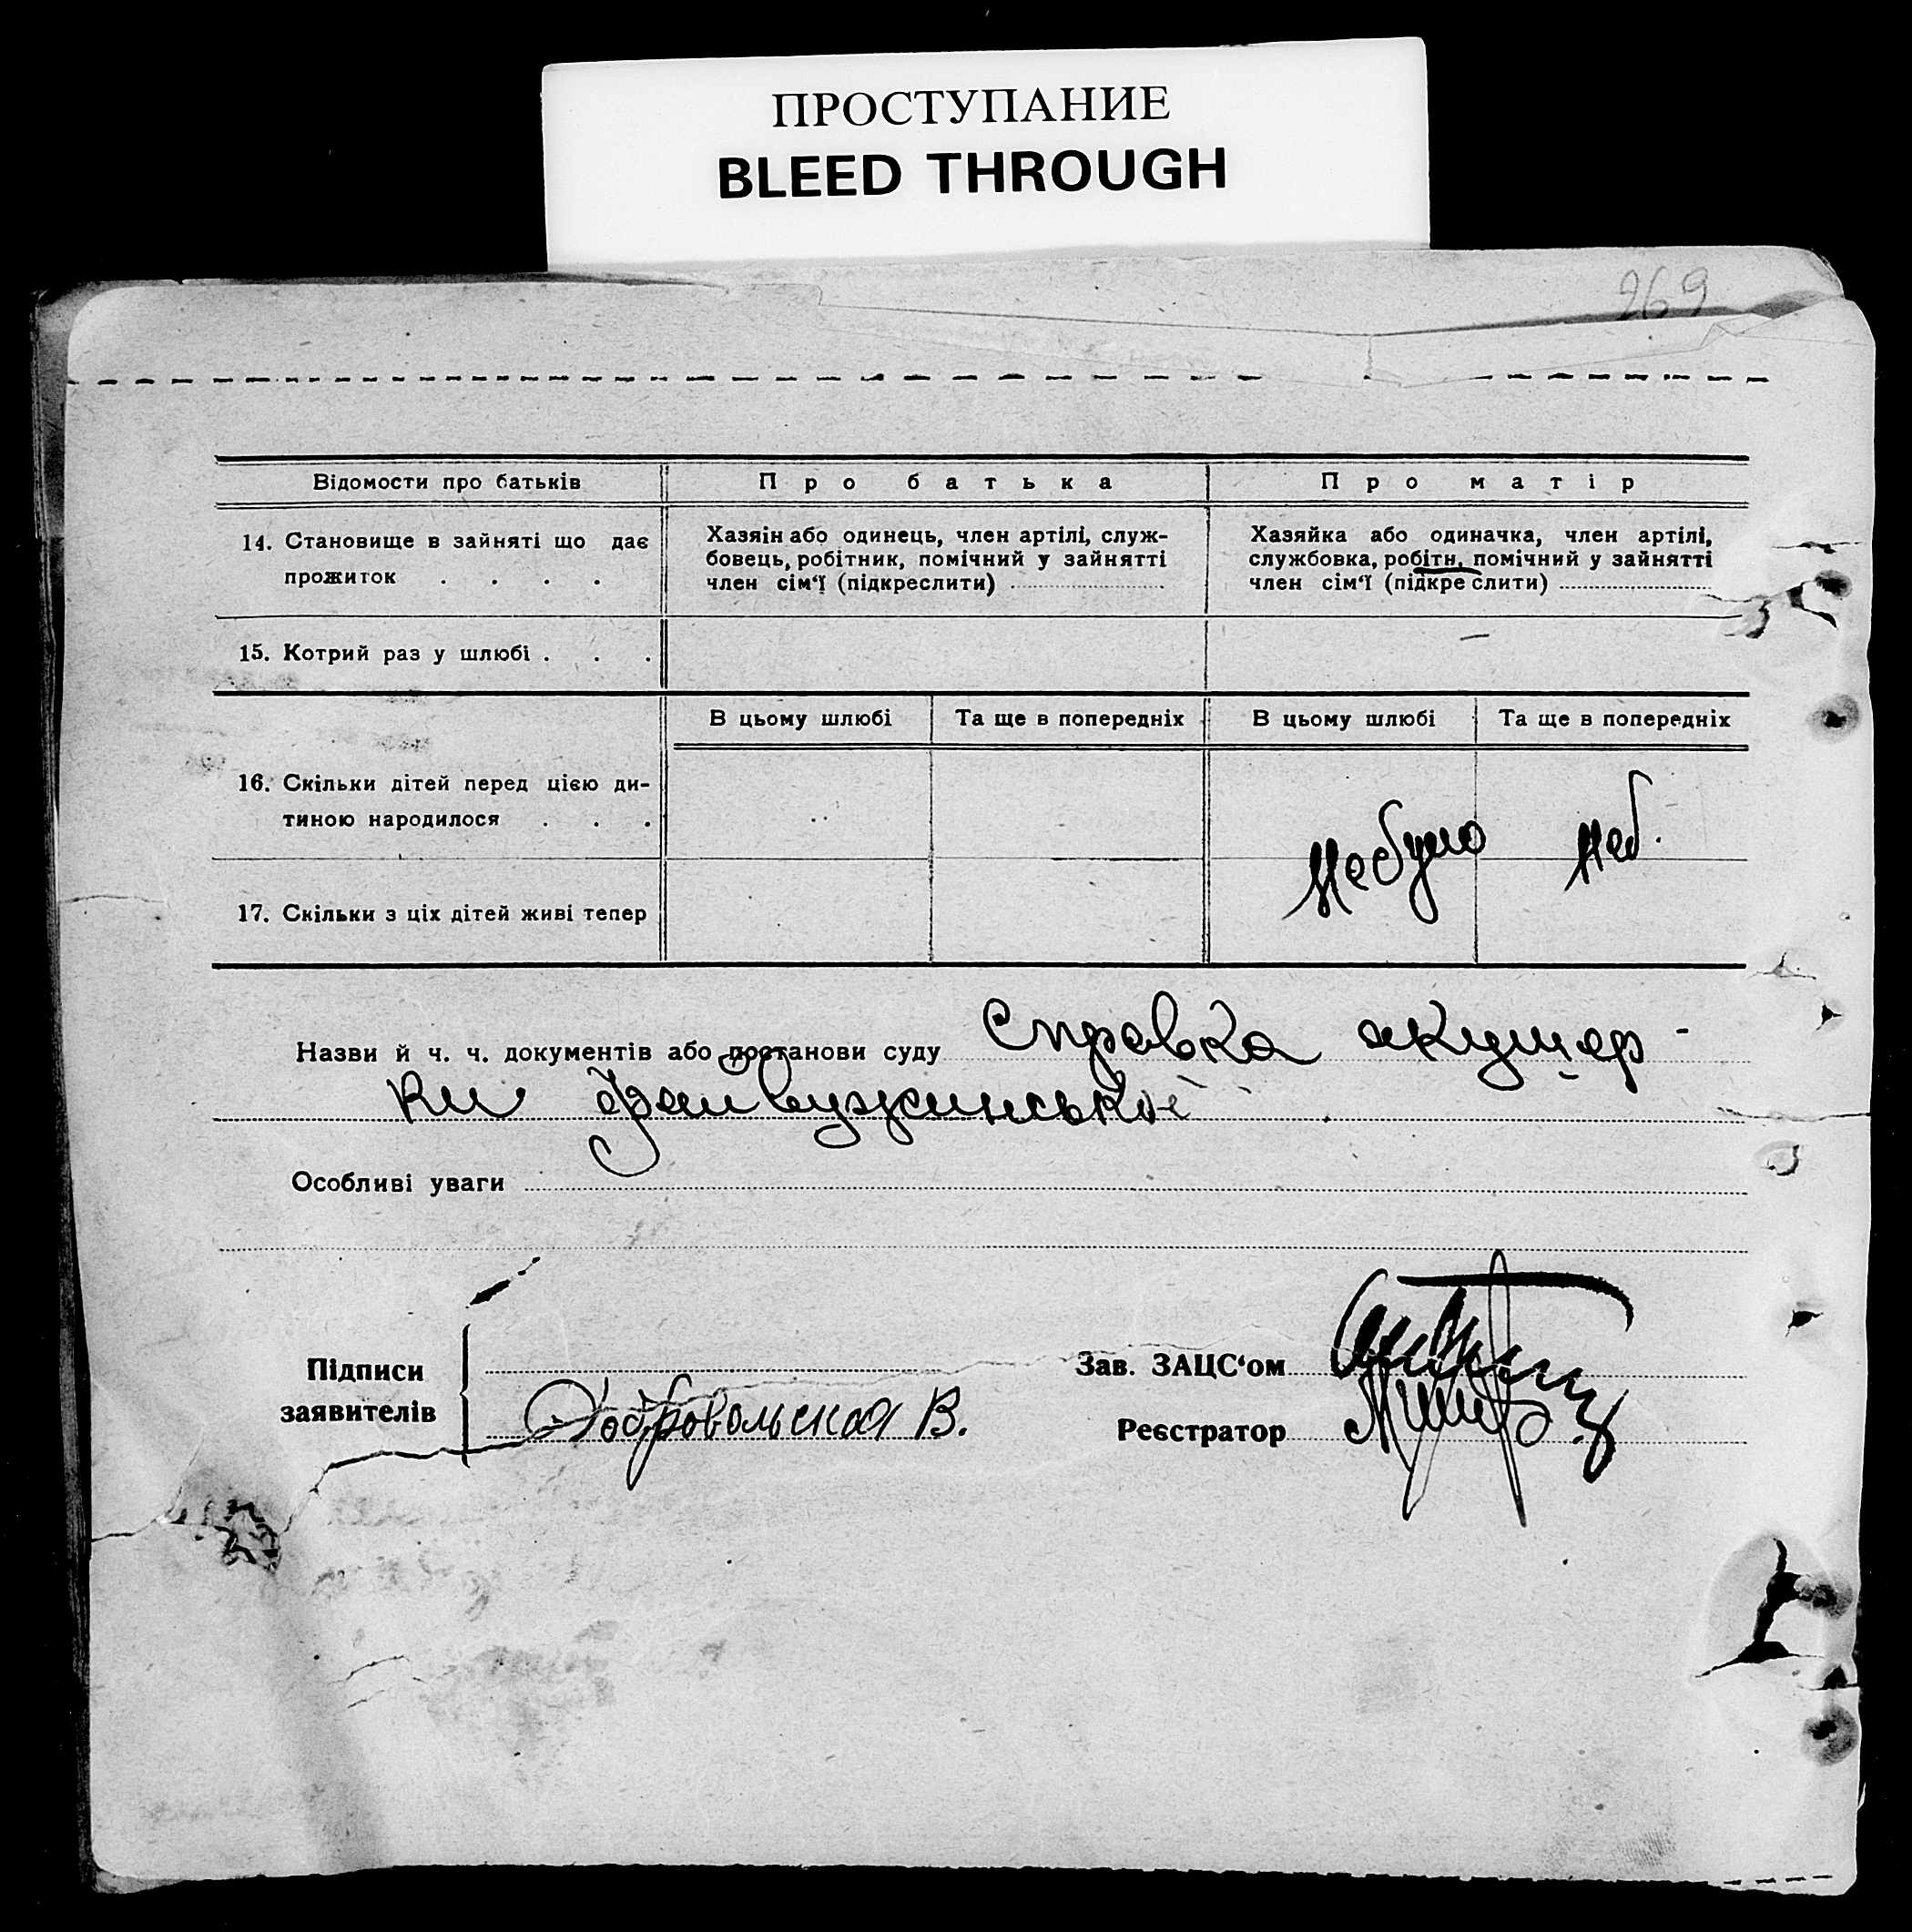 ПРОСТУПАНИЕ
BLEED THROUGH
269
Відомости про батьків
Про батька
Про матір
14. Становище в зайняті що дає
прожиток . . . .
Хазяін або одинець, член артілі, служ-
бовець, робітник, помічний у зайнятті
член сім‘ї (підкреслити)
Хазяйка або одиначка, член артілі,
службовка, робітн, помічний у зайнятті
член сім‘ї (підкреслити)
15. Котрий раз у шлюбі . . .
—
В цьому шлюбі
Та ще в попередніх
В цьому шлюбі
Та ще в попередніх
16. Скільки дітей перед цією ди-
тиною народилося . . .
Небуло
Неб.
17. Скільки з ціх дітей живі тепер
Назви й ч. ч. документів або постанови суду Справка акушер-
ки
Особливі уваги
Підписи
заявителів
Добровольская В.
Зав. ЗАЦС‘ом
Реєстратор